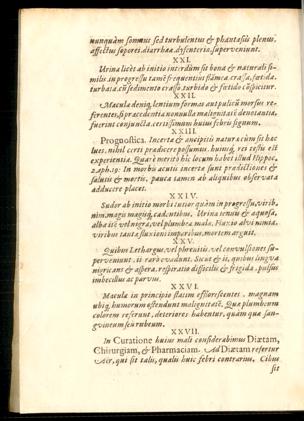 nunquàm somnus sed turbulentus & phantasiis plenus,
affectus sopores, diarrhœa, dysenteria, superveniunt.
XXI.
Urina licèt ab initio interdùm sit bona & naturali si-
milis in progressu tamē frequentius flāmea, crassa, fœtida,
turbata cū sedimento crasso turbido & fœtido cōspicitur.
XXII.
Macula deniq; lentium formas aut pulicū morsus re-
ferentes, si præcedentia nonnulla malignitatē denotantia,
fuerint conjuncta, certissimum hujus febris signum.
XXIII.
Prognostica. Incerta & ancipitis natura cùm sit hac
lues, nihil certi prædicere possumus. huius q; rei testis est
experientia. Quare meritò hic locum habet illud Hippoc.
2. aph. 19: In morbis acutis incerta sunt prædictiones &
salutis & mortis, pauca tamen ab aliquibus observata
adducere placet.
XXIV.
Sudor ab initio morbi satior quàm in progressu, virib.
nim. magis magisq; cadentibus. Urina tenuis & aquosa,
alba itē vel nigra, vel plumbea mala. Fluxus alvi nimia,
viribus tanta fluxioni imparibus, mortem arguit.
XXV.
Quibus Lethargus, vel phrenitis, vel convulsiones su-
perveniunt, ii rarò evadunt. Sicut & ii, quibus lingva
nigricans & aspera, respiratio difficilis & frigida, pulsus
imbecillus ac parvus.
XXVI.
Macula in principio statim efflorescentes, magnam
ubiq; humorum ostendunt malignitatē. Quæ plumbeum
colorem referunt, deteriores habentur, quàm quæ san-
gvineum seu rubeum.
XXVII.
In Curatione huius mali considerabimus Diætam,
Chirurgiam, & Pharmaciam. Ad Diætam refertur
Aër, qui sit talis, qualis huic febri contrarius. Cibus
sit